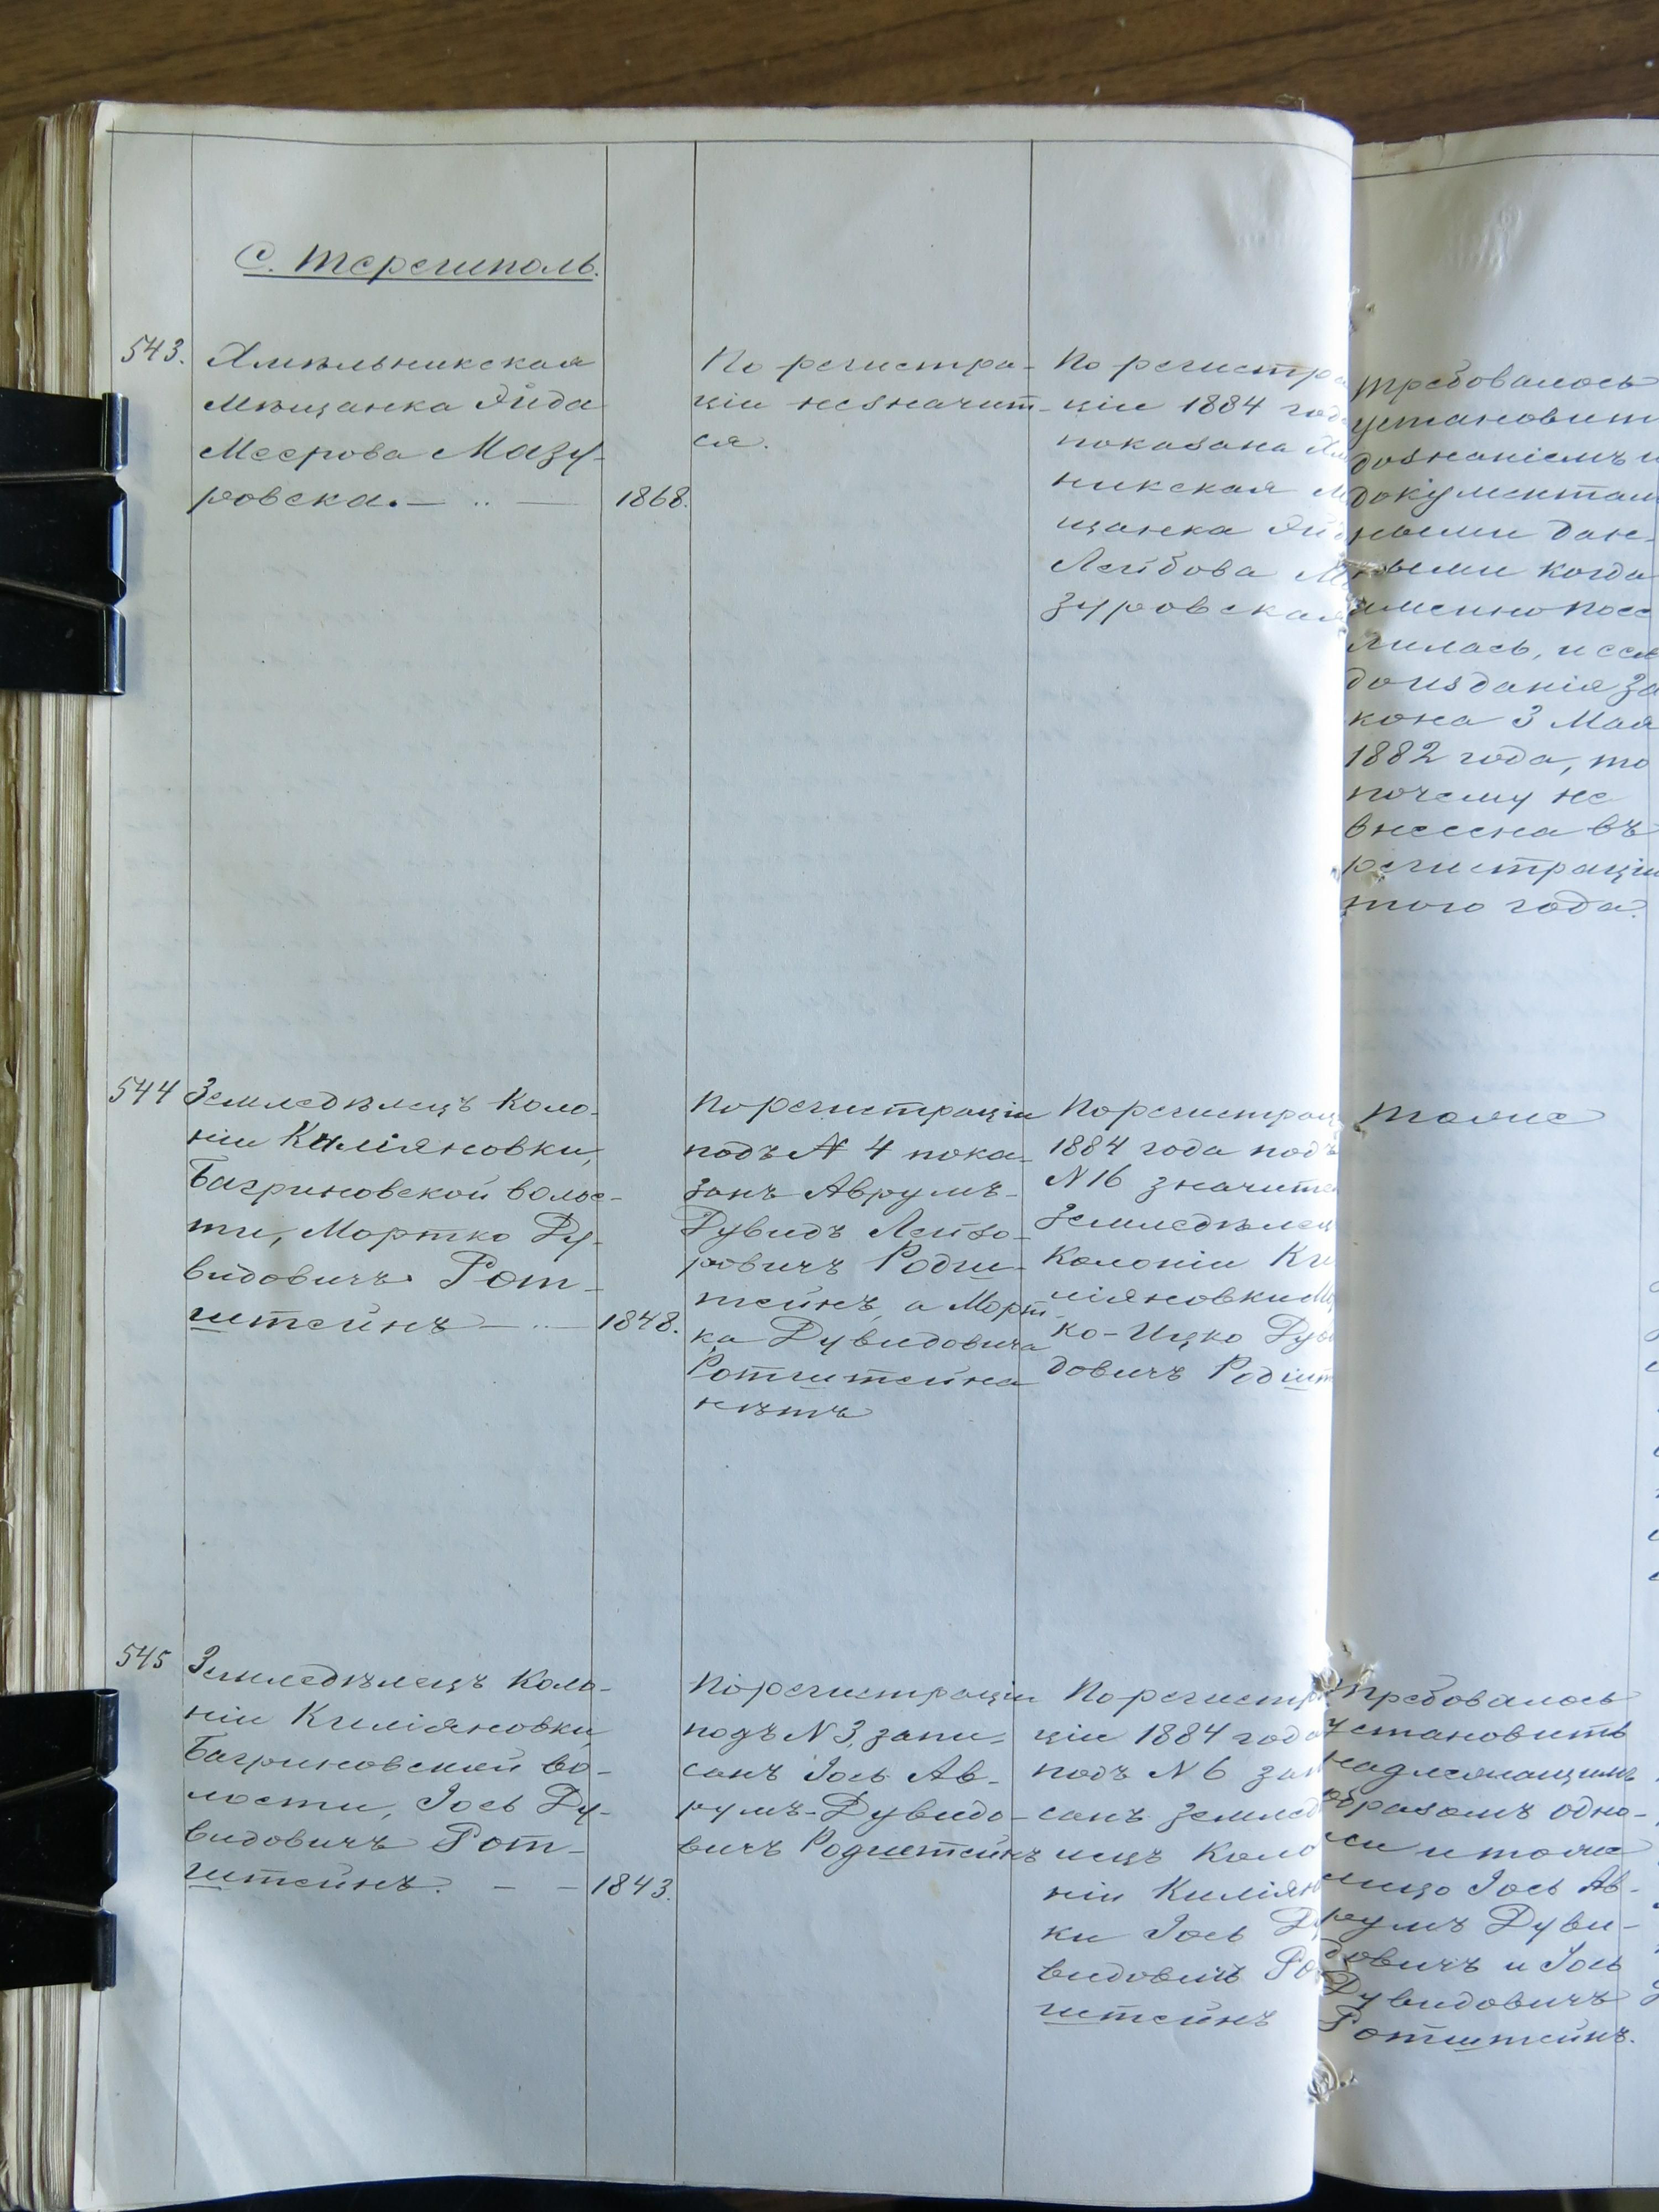 С. Терешполь.
543.
Хмѣльникская
мѣщанка Хйда
Меерова Мазу-
ровска.— .. —
1868.
По регистра-
ціи незначит-
ся.
По регистра
ціи 1884 год
показана
никская
щанка
Лейбова
зуровская
требовалось
установит
дознаніемъ и
документал
ными дан-
ными когда
именно посе
лилась, и если
до изданія за
кона 3 Мая
1882 года, то
почему не
внесена въ
регистрацію
того года.
544
Земледѣлецъ Коло-
ніи Киліяновки,
Багриновской волос-
ти, Мортко Ду-
видовичъ Рот-
штейнъ — .. —
1848.
По регистраціи
подъ № 4 пока-
занъ Аврумъ-
Дувидъ Лейзо-
ровичъ Родш-
тейнъ, а Морт-
ка Дувидовича
Ротштейна
нѣтъ
По регистрац
1884 года подъ
N 16 значится
земледѣлец
Колоніи Ки
ліяновки М
ко-Ицко Дуви
довичъ Родшт
тоже
545
Земледѣлецъ Коло-
ніи Киліяновки
Багриновской во-
лости, Іось Ду-
видовичъ Рот-
штейнъ. — —
1843.
По регистраціи
подъ N 3, запи-
санъ Іось Ав-
румъ-Дувидо-
вичъ Родштейнъ
По регистр
ціи 1884 года
подъ N 6 зап
санъ землед
лецъ Коло
ніи Килян
ки Іось Ду
видовичъ Ро
штейнъ
требовалось
установить
надлежащимъ
образомъ одно-
ли и тоже
лицо Іось Ав-
румъ Дуви-
довичъ и Іось
Дувидовичъ
Ротштейнъ.